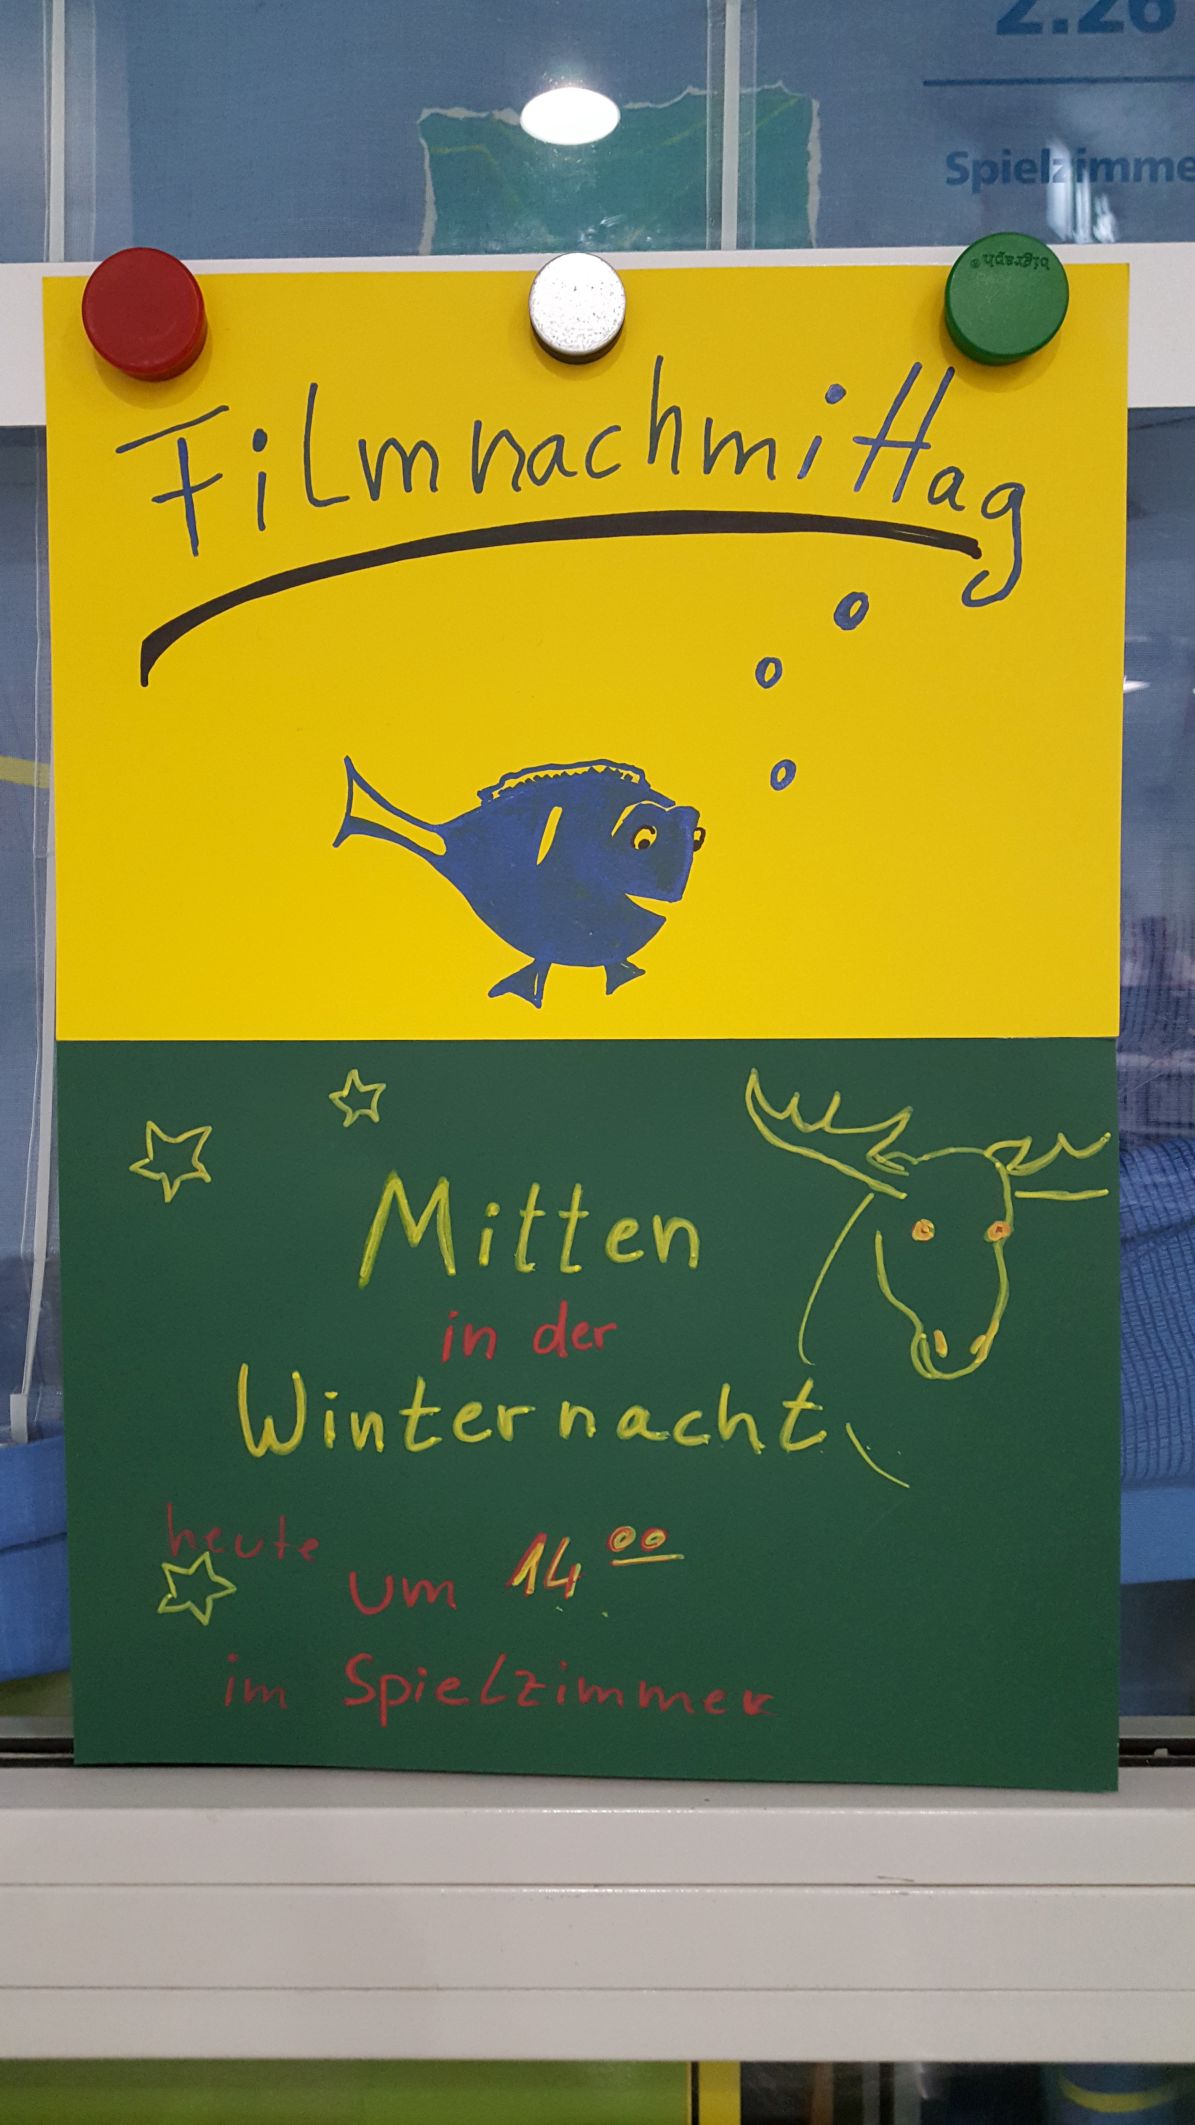 2.26
Spielzimme
bigraph®
Filmnachmittag
Mitten
in der
Winternacht
heute
um 14 00
im Spielzimmer